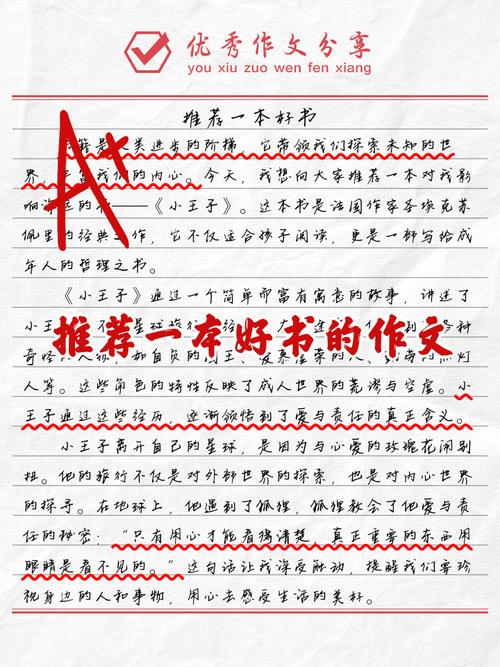 优秀作文分享
you xiu zuo wen fen xiang
推荐一本好书
A+
是 类进步的阶梯，它带领我们探索未知的世
界， 我们的内心。今天，我想向大家推荐一本对我影
响 的 ——《小王子》。这本书是法国作家圣埃克苏
佩里的经典 作，它不仅适合孩子阅读，更是一部写给成
年人的哲理之书。
《小王子》通过一个简单而富有寓意的故事，讲述了
小王 星球
推荐一本好书的作文
奇怪 人物，如自负的国王、爱慕虚荣的人、 点灯
人等。这些角色的特性反映了成人世界的荒谬与空虚。小
王子通过这些经历，逐渐领悟到了爱与责任的真正含义。
小王子离开自己的星球，是因为与心爱的玫瑰花闹别
扭。他的旅行不仅是对外部世界的探索，也是对内心世界
的探寻。在地球上，他遇到了狐狸，狐狸教会了他爱与责
任的秘密：“只有用心才能看得清楚，真正重要的东西用
眼睛是看不见的。”这句话让我深受触动，提醒我们要珍
视身边的人和事物，用心去感受生活的美好。